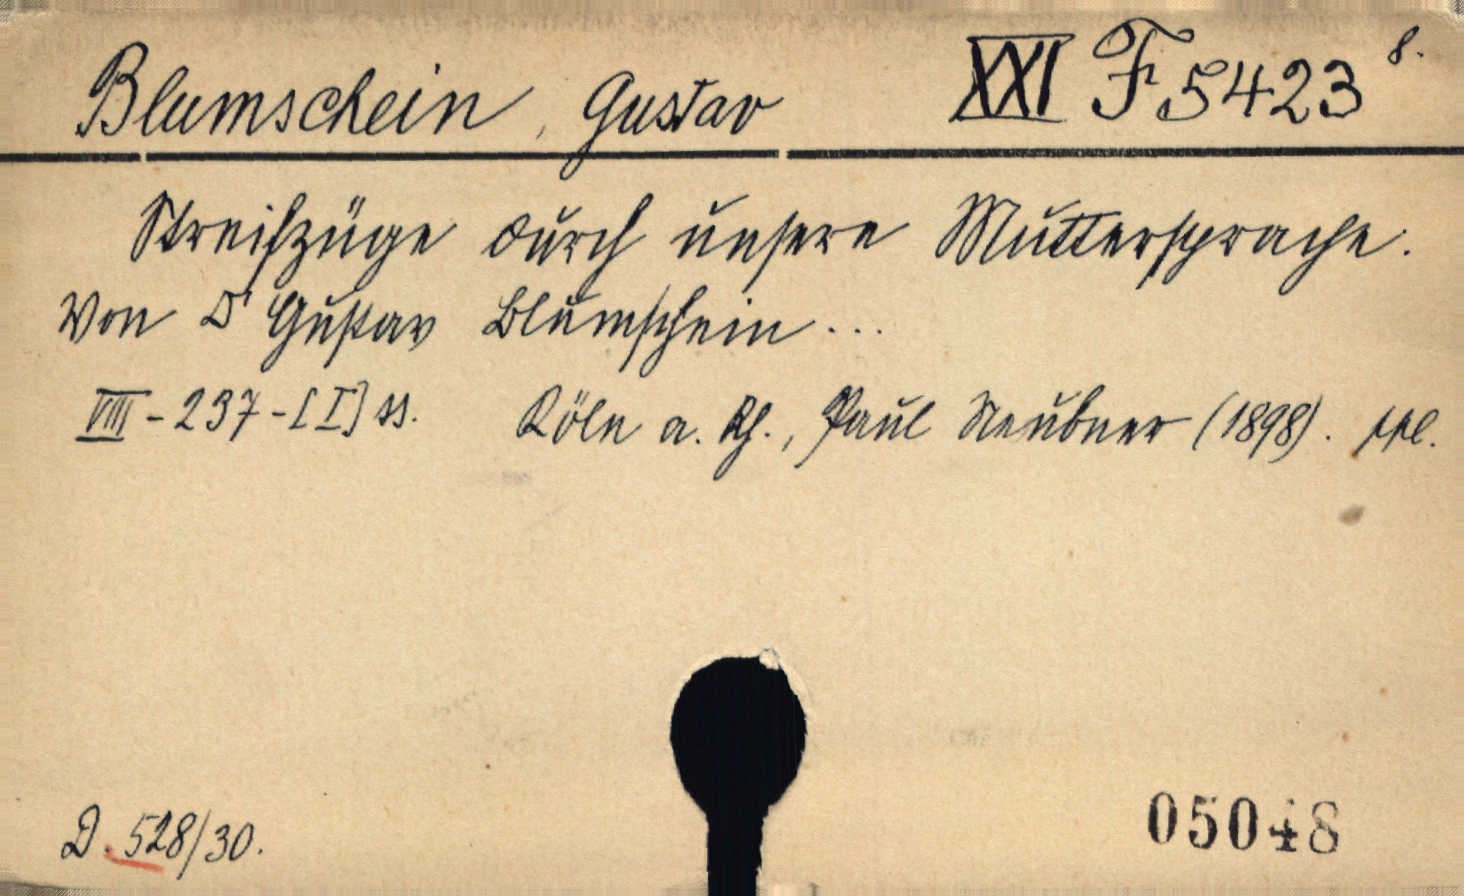 Blumschein, Gustav XXI F 5423 8.
Streifzüge durch unsere Muttersprache.
Von Dr Gustav Blumschein ...
VIII-237-[I] ss. Köln a. Rh., Paul Neubner (1898). ppl.
D. 528/30.
05048